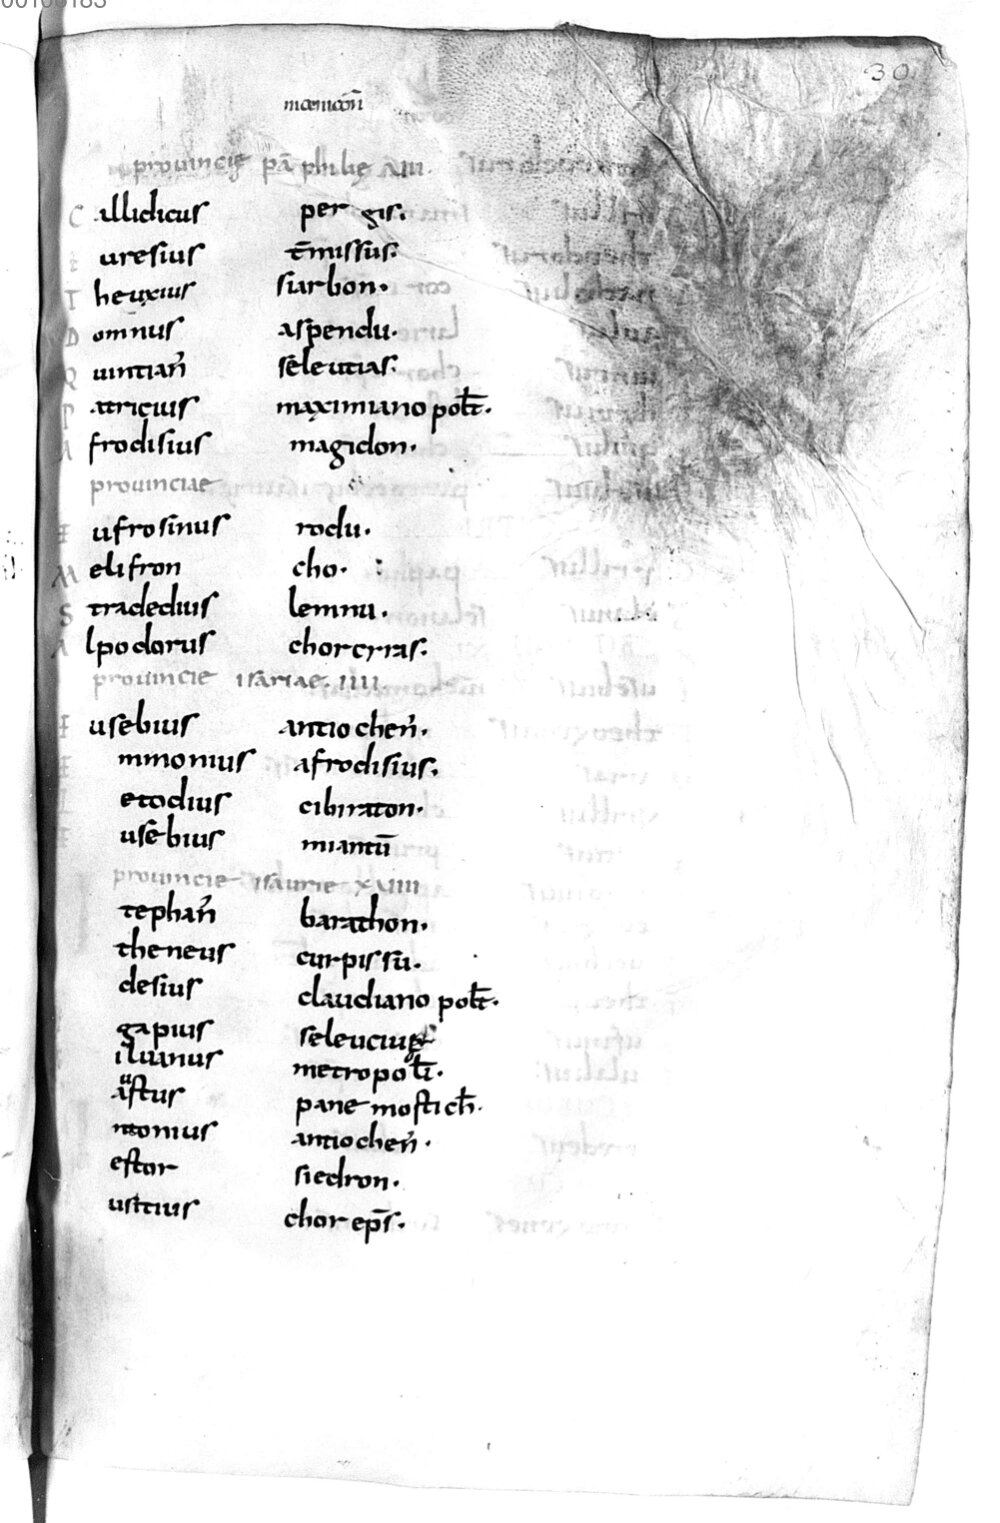 30
provincię pāphilię AIII.
C allidicus per gis.
uresius t̄missus:
T heuxius siarbon.
D omnus aspendu.
Q uintian̄ seleucias:
P atricius maximiano pol̄t.
A frodisius magidon.
provinciae
E ufrosinus rodu.
M elifron cho.
S tradedius lemnu.
A lpodorus chorcyras:
provincie isariae. IIII
E usebius antiochen̄.
E mmonius afrodisius.
etodius cibiraton.
E usebius miantū
provincie isaurie XVIIII
tephan̄ barathon.
theneus curpissu.
desius claudiano pol̄t.
gapius seleucię
iluanus metropol̄i.
austus panemostich̄.
ntonius antiochen̄.
estor siedron.
ustius chorep̄s.